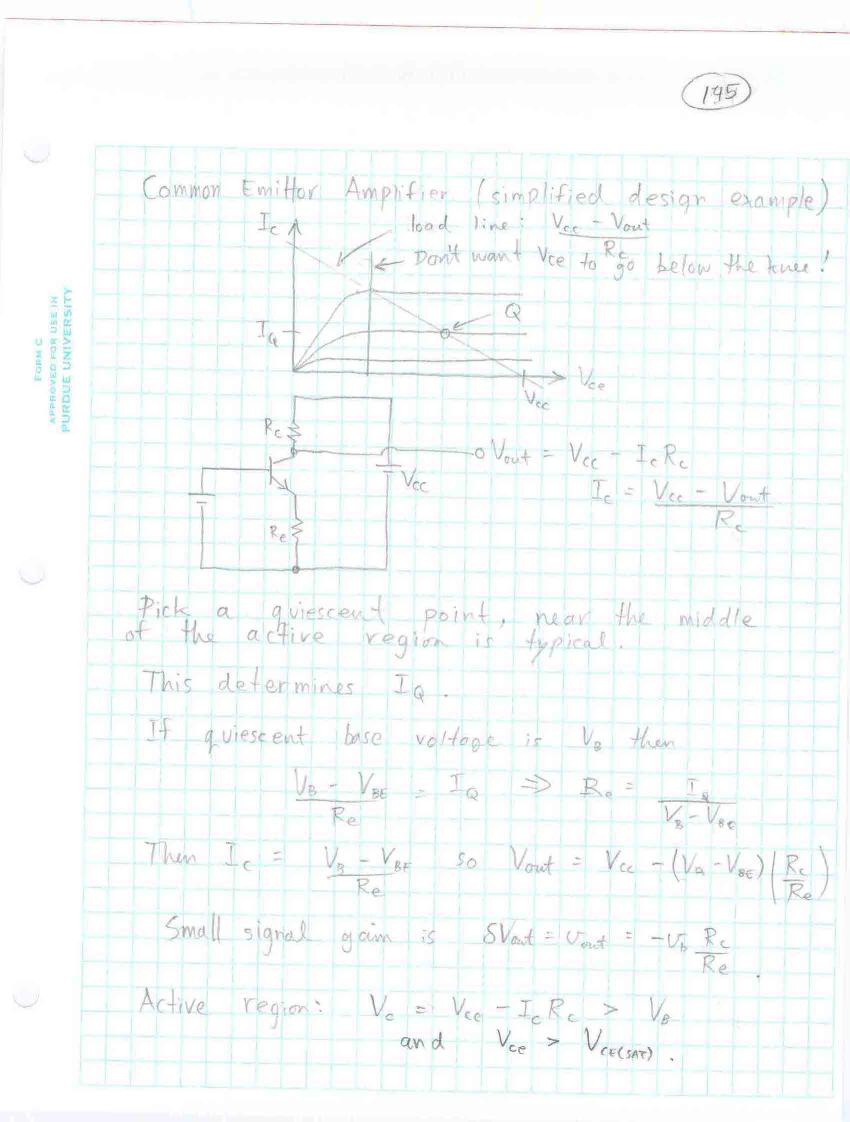 145
FORM C
APPROVED FOR USE IN
PURDUE UNIVERSITY
Common Emittor Amplifier (simplified design example)
Ic load line: Vcc - Vout / Rc
Don't want Vce to go below the knee!
Q
IQ
Vce
Vcc
Rc
Vout = Vcc - Ic Rc
Vcc
Ic = Vcc - Vout / Rc
Re
Pick a quiescent point, near the middle
of the active region is typical.
This determines IQ.
If quiescent base voltage is VB then
VB - VBE / Re = IQ ⇒ Re = IQ / VB - VBE
Then Ic = VB - VBE / Re so Vout = Vcc - (VB - VBE)(Rc / Re)
Small signal gain is δVout = vout = -vb Rc / Re.
Active region: Vc = Vcc - Ic Rc > VB
and Vce > VCE(SAT).